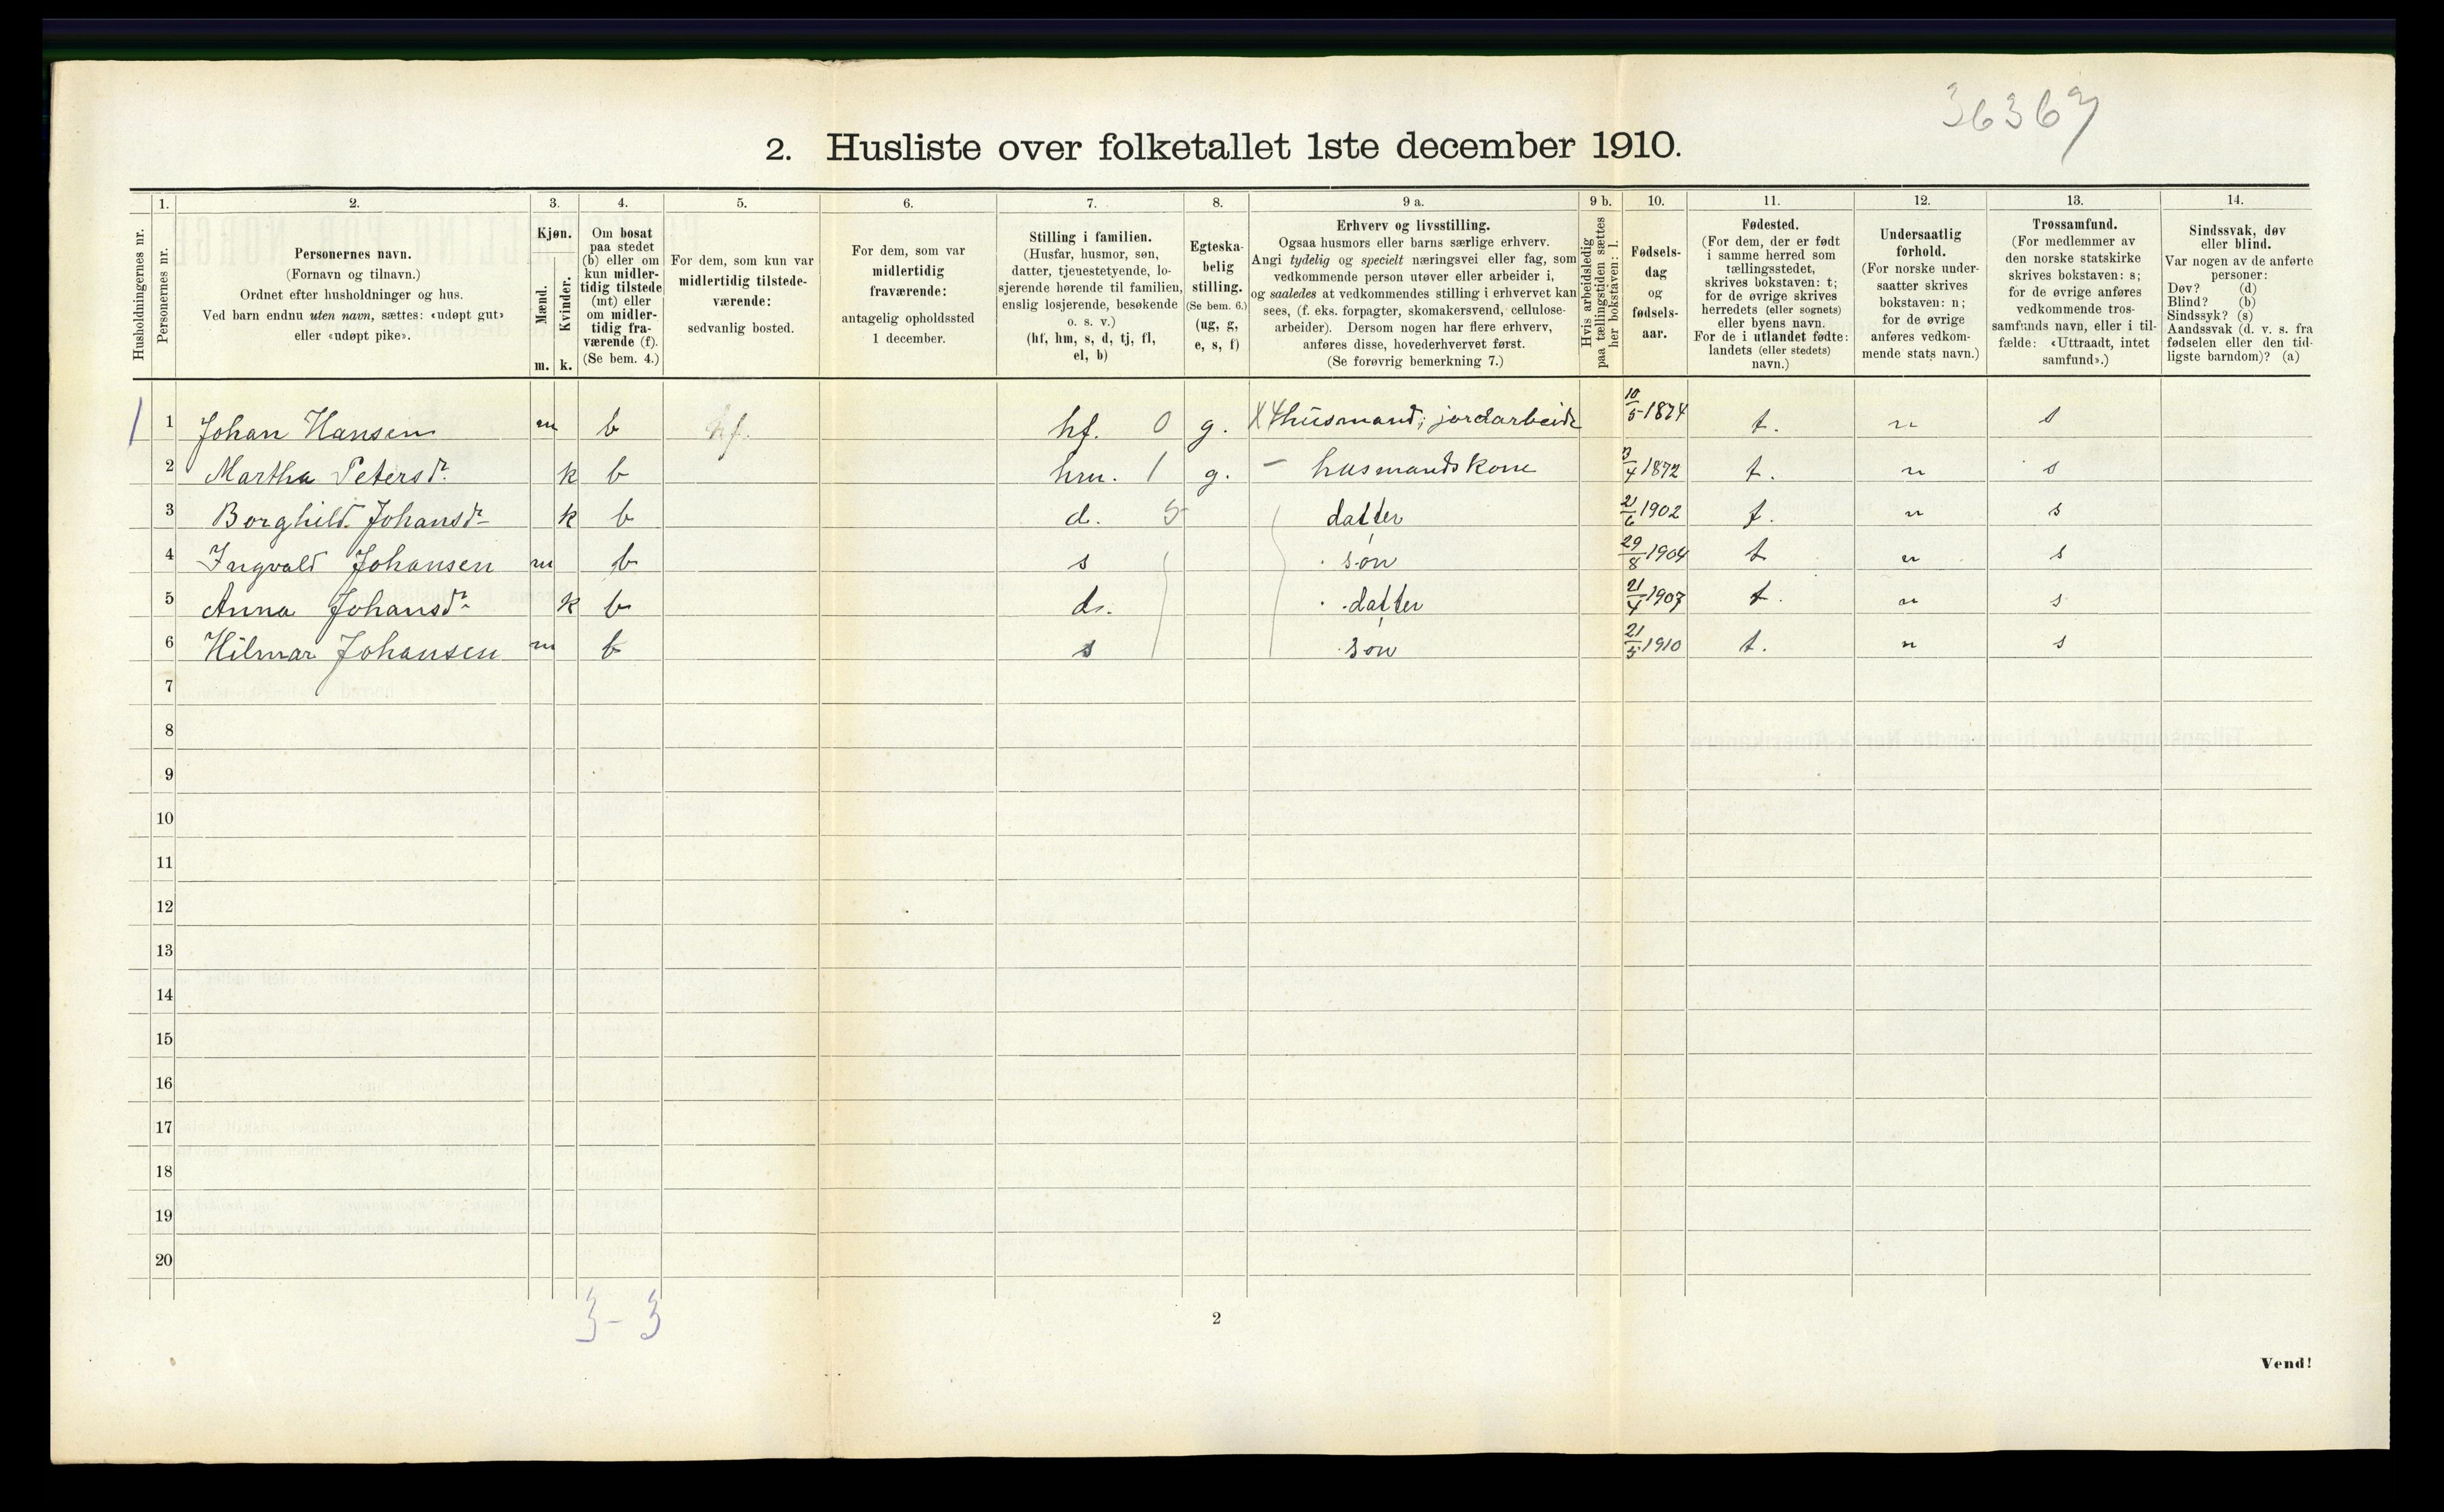 36367
2. Husliste over folketallet 1ste december 1910.
Husholdningernes nr.
1. Personernes nr.
2. Personernes navn.
(Fornavn og tilnavn.)
Ordnet efter husholdninger og hus.
Ved barn endnu uten navn, sættes: «udøpt gut»
eller «udøpt pike».
3. Kjøn.
Mænd. m.
Kvinder. k.
4. Om bosat
paa stedet
(b) eller om
kun midler-
tidig tilstede
(mt) eller
om midler-
tidig fra-
værende (f).
(Se bem. 4.)
5. For dem, som kun var
midlertidig tilstede-
værende:
sedvanlig bosted.
6. For dem, som var
midlertidig
fraværende:
antagelig opholdssted
1 december.
7. Stilling i familien.
(Husfar, husmor, søn,
datter, tjenestetyende, lo-
sjerende hørende til familien,
enslig losjerende, besøkende
o. s. v.)
(hf, hm, s, d, tj, fl,
el, b)
8. Egteska-
belig
stilling.
(Se bem. 6.)
(ug, g,
e, s, f)
9 a. Erhverv og livsstilling.
Ogsaa husmors eller barns særlige erhverv.
Angi tydelig og specielt næringsvei eller fag, som
vedkommende person utøver eller arbeider i,
og saaledes at vedkommendes stilling i erhvervet kan
sees, (f. eks. forpagter, skomakersvend, cellulose-
arbeider). Dersom nogen har flere erhverv,
anføres disse, hovederhvervet først.
(Se forøvrig bemerkning 7.)
9 b. Hvis arbeidsledig
paa tællingstiden sættes
her bokstaven: l.
10. Fødsels-
dag
og
fødsels-
aar.
11. Fødested.
(For dem, der er født
i samme herred som
tællingsstedet,
skrives bokstaven: t;
for de øvrige skrives
herredets (eller sognets)
eller byens navn.
For de i utlandet fødte:
landets (eller stedets)
navn.)
12. Undersaatlig
forhold.
(For norske under-
saatter skrives
bokstaven: n;
for de øvrige
anføres vedkom-
mende stats navn.)
13. Trossamfund.
(For medlemmer av
den norske statskirke
skrives bokstaven: s;
for de øvrige anføres
vedkommende tros-
samfunds navn, eller i til-
fælde: «Uttraadt, intet
samfund».)
14. Sindssvak, døv
eller blind.
Var nogen av de anførte
personer:
Døv? (d)
Blind? (b)
Sindssyk? (s)
Aandssvak (d. v. s. fra
fødselen eller den tid-
ligste barndom)? (a)
1 1 Johan Hansen m b hf. hf. 0 g. X4 husmand; jordarbeide 10/5 1874 t. n s
2 Martha Petersdr. k b hm. 1 g. - husmandskone 3/4 1872 t. n s
3 Borghild Johansdr k b d. 5 datter 21/6 1902 t. n s
4 Ingvald Johansen m b s søn 29/8 1904 t n s
5 Anna Johansdr k b d. datter 21/4 1907 t. n s
6 Hilmar Johansen m b s søn 21/5 1910 t. n s
7
8
9
10
11
12
13
14
15
16
17
18
19
20
3-3
2
Vend!